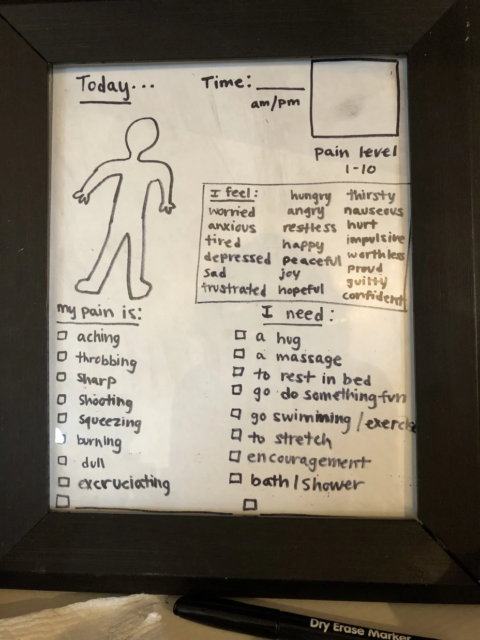 Today... Time: ____
am/pm
pain level
1-10
I feel: hungry thirsty
worried angry nauseous
anxious restless hurt
tired happy impulsive
depressed peaceful worthless
sad joy proud
frustrated hopeful guilty
confident
my pain is:
aching
throbbing
sharp
shooting
squeezing
burning
dull
excruciating
I need:
a hug
a massage
to rest in bed
go do something fun
go swimming / exercise
to stretch
encouragement
bath/shower
Dry Erase Marker